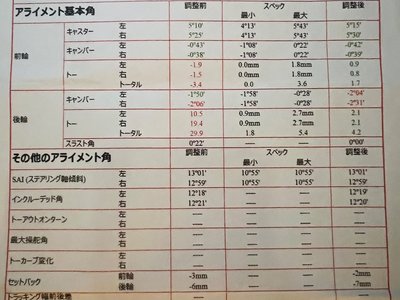 アライメント基本角 調整前 スペック 調整後
最小 最大
キャスター 左 5°10' 4°13' 5°43' 5°15'
右 5°25' 4°13' 5°43' 5°30'
前輪 キャンバー 左 -0°43' -1°08' 0°22' -0°42'
右 -0°38' -1°08' 0°22' -0°39'
トー 左 -1.9 0.0mm 1.8mm 0.9
右 -1.5 0.0mm 1.8mm 0.8
トータル -3.4 0.0 3.6 1.7
キャンバー 左 -1°50' -1°58' -0°28' -2°04'
後輪 右 -2°06' -1°58' -0°28' -2°31'
トー 左 10.5 0.9mm 2.7mm 2.1
右 19.4 0.9mm 2.7mm 2.1
トータル 29.9 1.8 5.4 4.2
スラスト角 0°22' ---- ---- 0°00'
その他のアライメント角 調整前 スペック 調整後
最小 最大
SAI (ステアリング軸傾斜) 左 13°01' 10°55' 10°55' 13°01'
右 12°59' 10°55' 10°55' 12°59'
インクルーデッド角 左 12°18' ---- ---- 12°19'
右 12°21' ---- ---- 12°20'
トーアウトオンターン 左 ---- ---- ---- ----
右 ---- ---- ---- ----
最大操舵角 左 ---- ---- ---- ----
右 ---- ---- ---- ----
トーカーブ変化 左 ---- ---- ---- ----
右 ---- ---- ---- ----
セットバック 前輪 -3mm ---- ---- -2mm
後輪 -6mm ---- ---- -7mm
トラッキング幅前後差